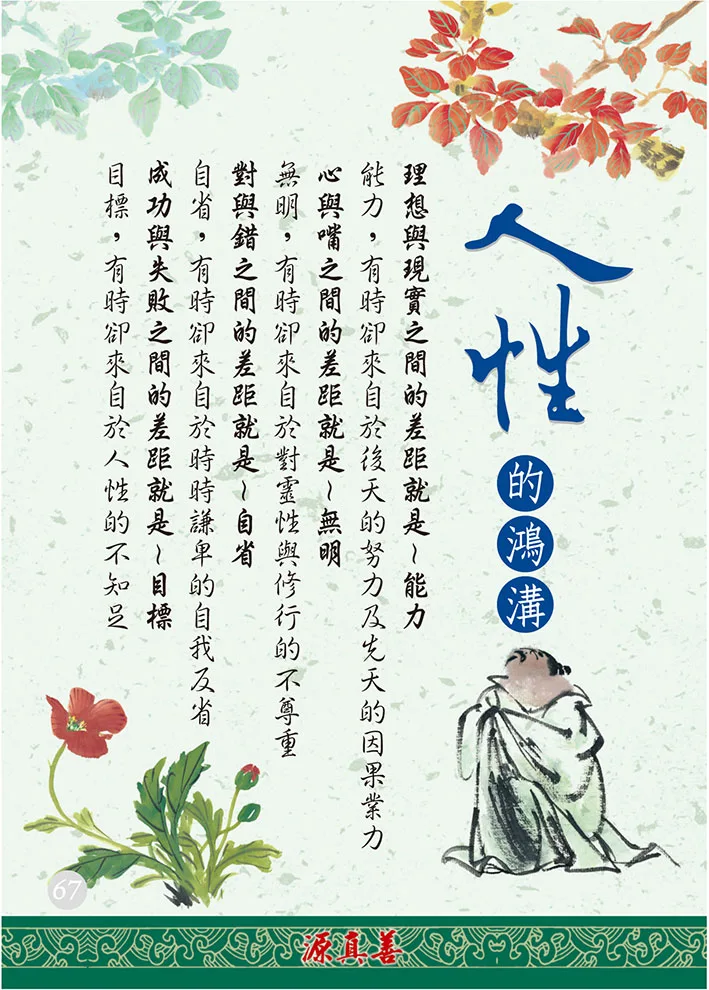 人性
的鴻溝
理想與現實之間的差距就是~能力
能力，有時卻來自於後天的努力及先天的因果業力
心與嘴之間的差距就是~無明
無明，有時卻來自於對靈性與修行的不尊重
對與錯之間的差距就是~自省
自省，有時卻來自於時時謙卑的自我反省
成功與失敗之間的差距就是~目標
目標，有時卻來自於人性的不知足
67
源真善